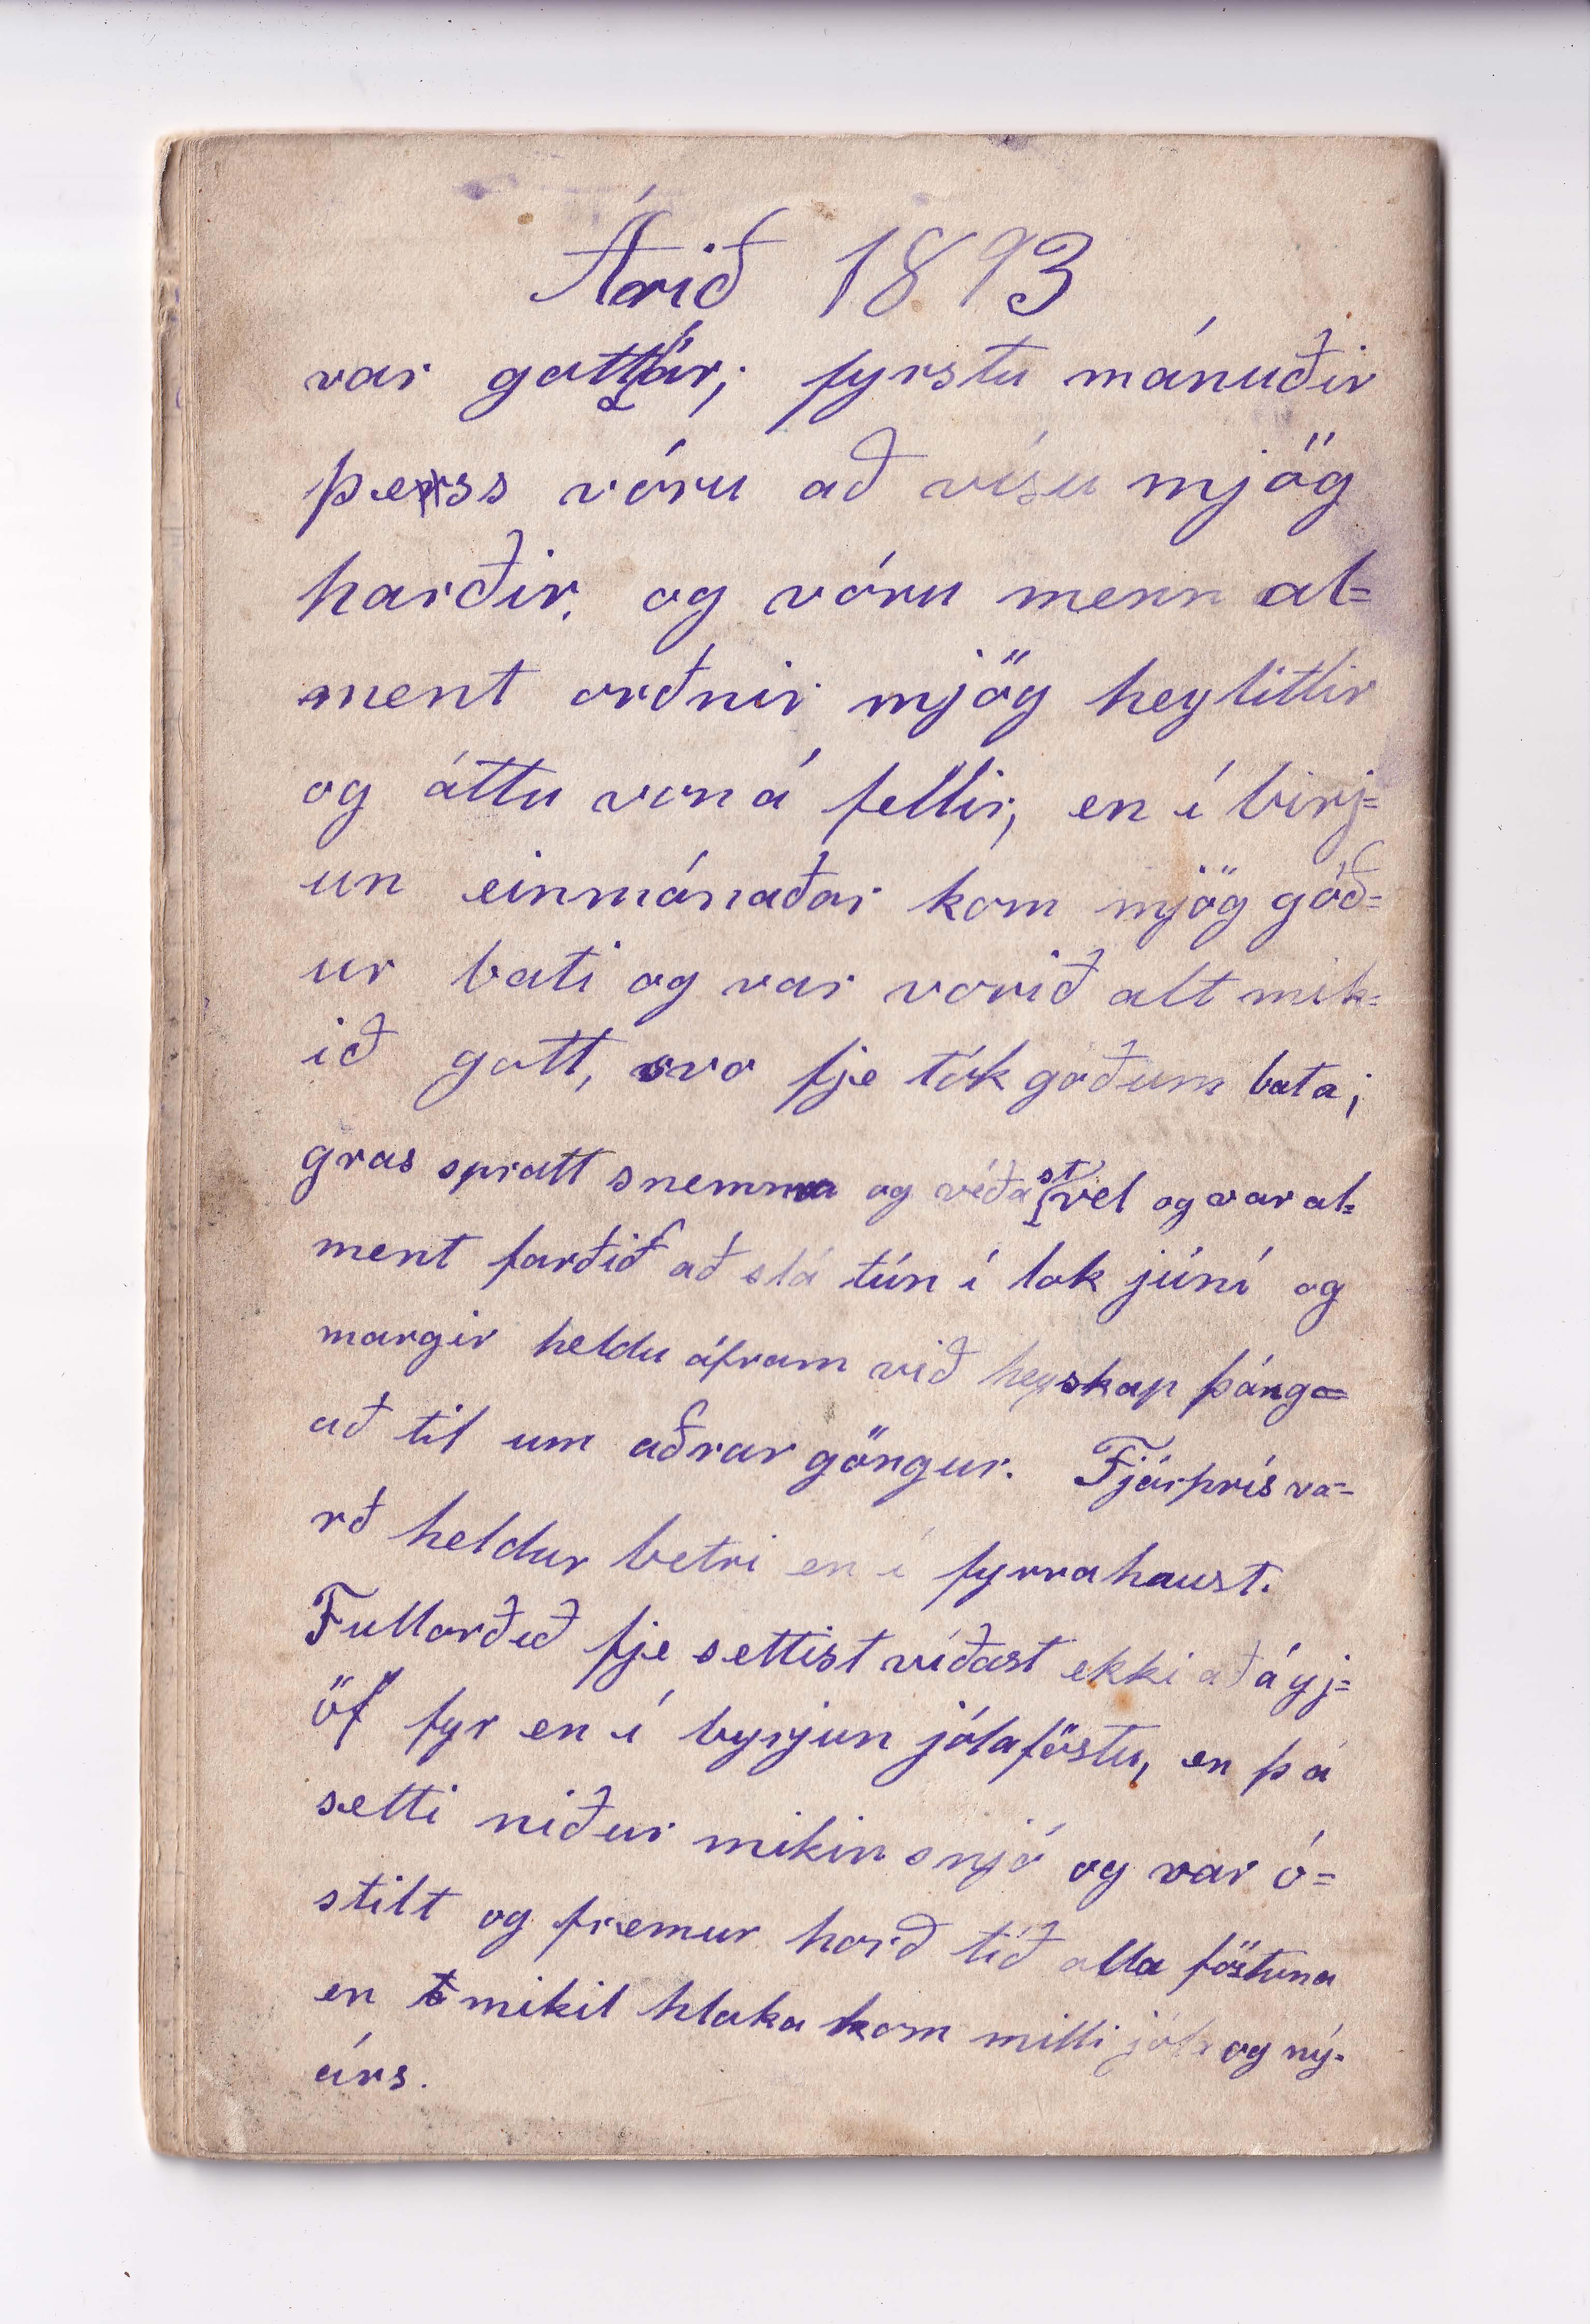 Árið 1893
var gott ár; fyrstu mánuðir
þess vóru að vísu mjög
harðir, og vóru menn al=
ment orðnir mjög heylitlir
og áttu von á fellir, en í birj=
un einmánaðar kom mjög góð=
ur bati og var vorið alt mik=
ið gott, svo fje tók góðum bata;
gras spratt snemma og víðast vel og var al=
ment farðið að slá tún í lok júní og
margir heldu áfram við heyskap þánga=
að til um aðrar göngur. Fjárprís va=
rð heldur betri en í fyrrahaust.
Fullorðið fje settist víðast ekki að á gj=
öf fyr en í byrjun jólaföstu, en þá
setti niður mikin snjó og var ó=
stilt og fremur horð tíð alla föstuna
en mikil hlaka kom milli jóla og ný=
árs.